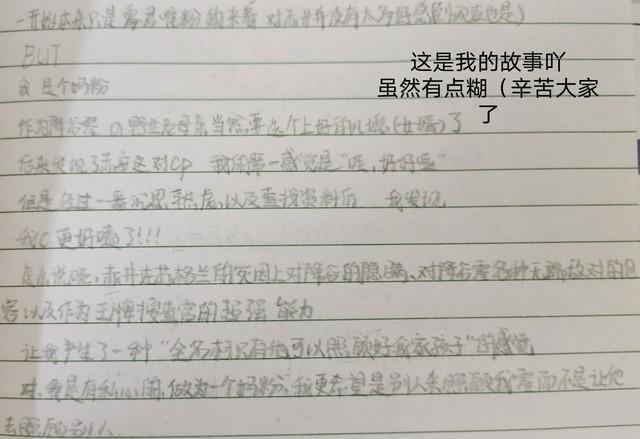 一开始本来只是零君唯粉的来着 对赤井并没有太多好感(现在也是)
BUT
我是个奶粉
这是我的故事吖
虽然有点糊（辛苦大家
了
作为降谷零の野生后母亲当然要选个上好的儿媳(女婿)了
后来发现了赤安这对CP 我的第一感觉是"哇,好好嗑"
但是经过一番沉思熟虑,以及查找资料后 我发现
我C更好嗑了!!!
怎么说呢,赤井在苏格兰的死因上对降谷的隐瞒、对降谷零各种无端敌对的包
容以及作为王牌搜查官的超强能力
让我产生了一种"全名柯只有他可以照顾好我家孩子"的感觉
对,我是有私心的,做为一个奶粉,我更希望是别人来照顾我零而不是让他
去照顾别人